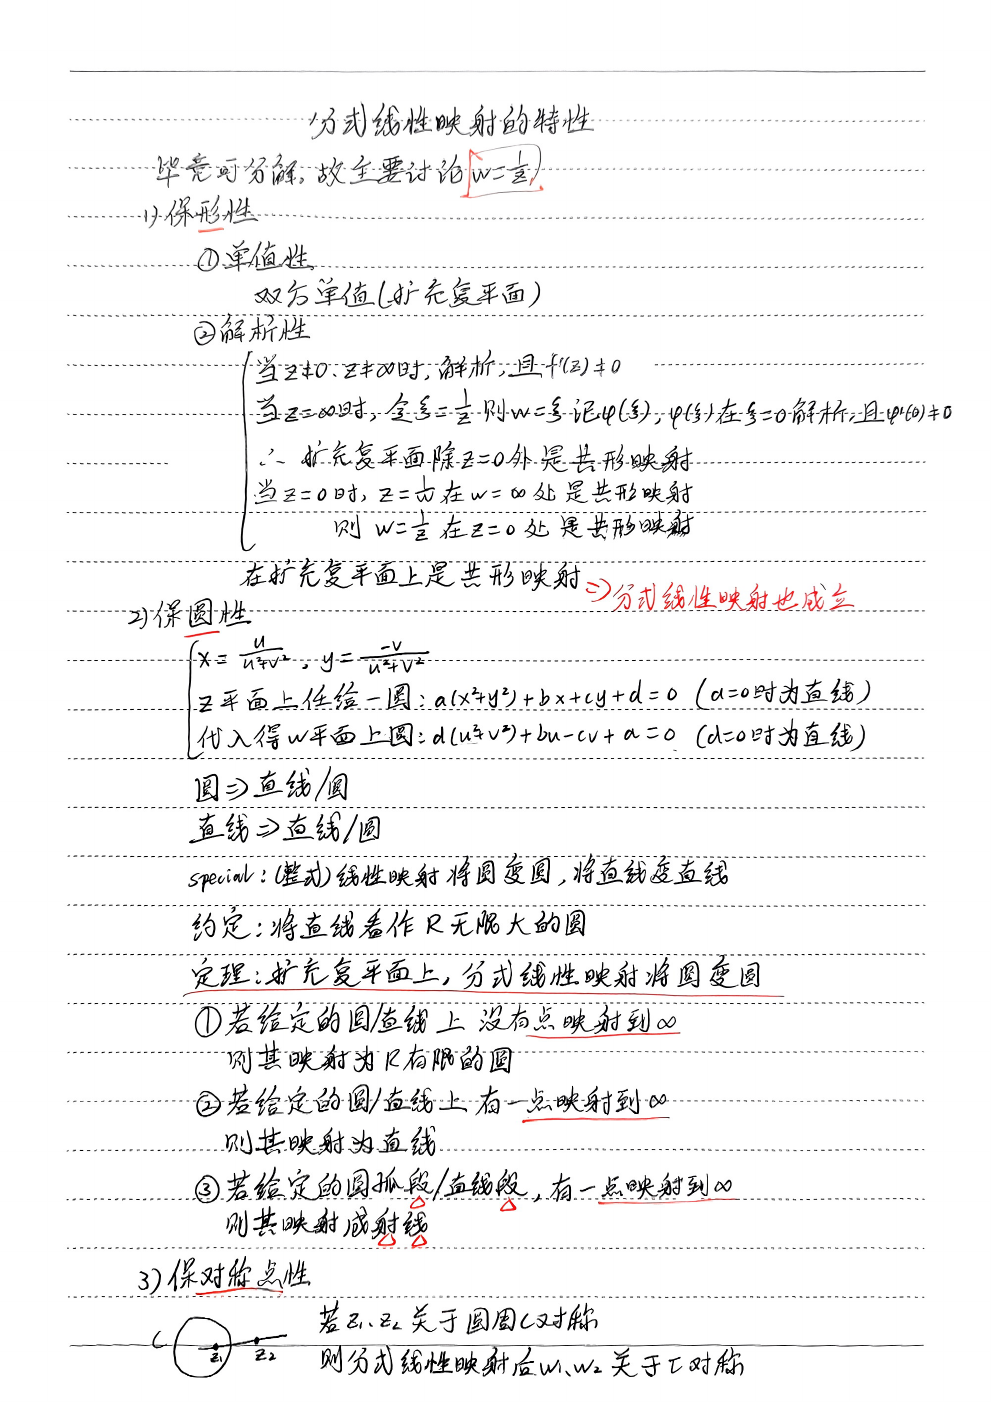 分式线性映射的特性
毕竟可分解,故主要讨论 w=1/z
1) 保形性
①单值性
双方单值(扩充复平面)
②解析性
当z≠0、z≠∞时,解析,且f'(z)≠0
当z=∞时,令ξ=1/z 则w=ξ 记φ(ξ), φ(ξ)在ξ=0解析,且φ'(0)≠0
∴ 扩充复平面除z=0外是共形映射
当z=0时, z=1/w 在w=∞处是共形映射
则 w=1/z 在z=0处是共形映射
在扩充复平面上是共形映射 ⇒分式线性映射也成立
2) 保圆性
x=u/(u²+v²), y=-v/(u²+v²)
z平面上任给一圆: a(x²+y²)+bx+cy+d=0 (a=0时为直线)
代入得w平面上圆: d(u²+v²)+bu-cv+a=0 (d=0时为直线)
圆⇒直线/圆
直线⇒直线/圆
special: (整式)线性映射将圆变圆,将直线变直线
约定: 将直线看作R无限大的圆
定理: 扩充复平面上,分式线性映射将圆变圆
①若给定的圆/直线上 没有点映射到∞
则其映射为R有限的圆
②若给定的圆/直线上 有一点映射到∞
则其映射为直线
③若给定的圆弧段/直线段,有一点映射到∞
则其映射成射线
3) 保对称点性
C z₁ z₂ 若z₁、z₂关于圆周C对称
则分式线性映射后w₁、w₂关于Γ对称